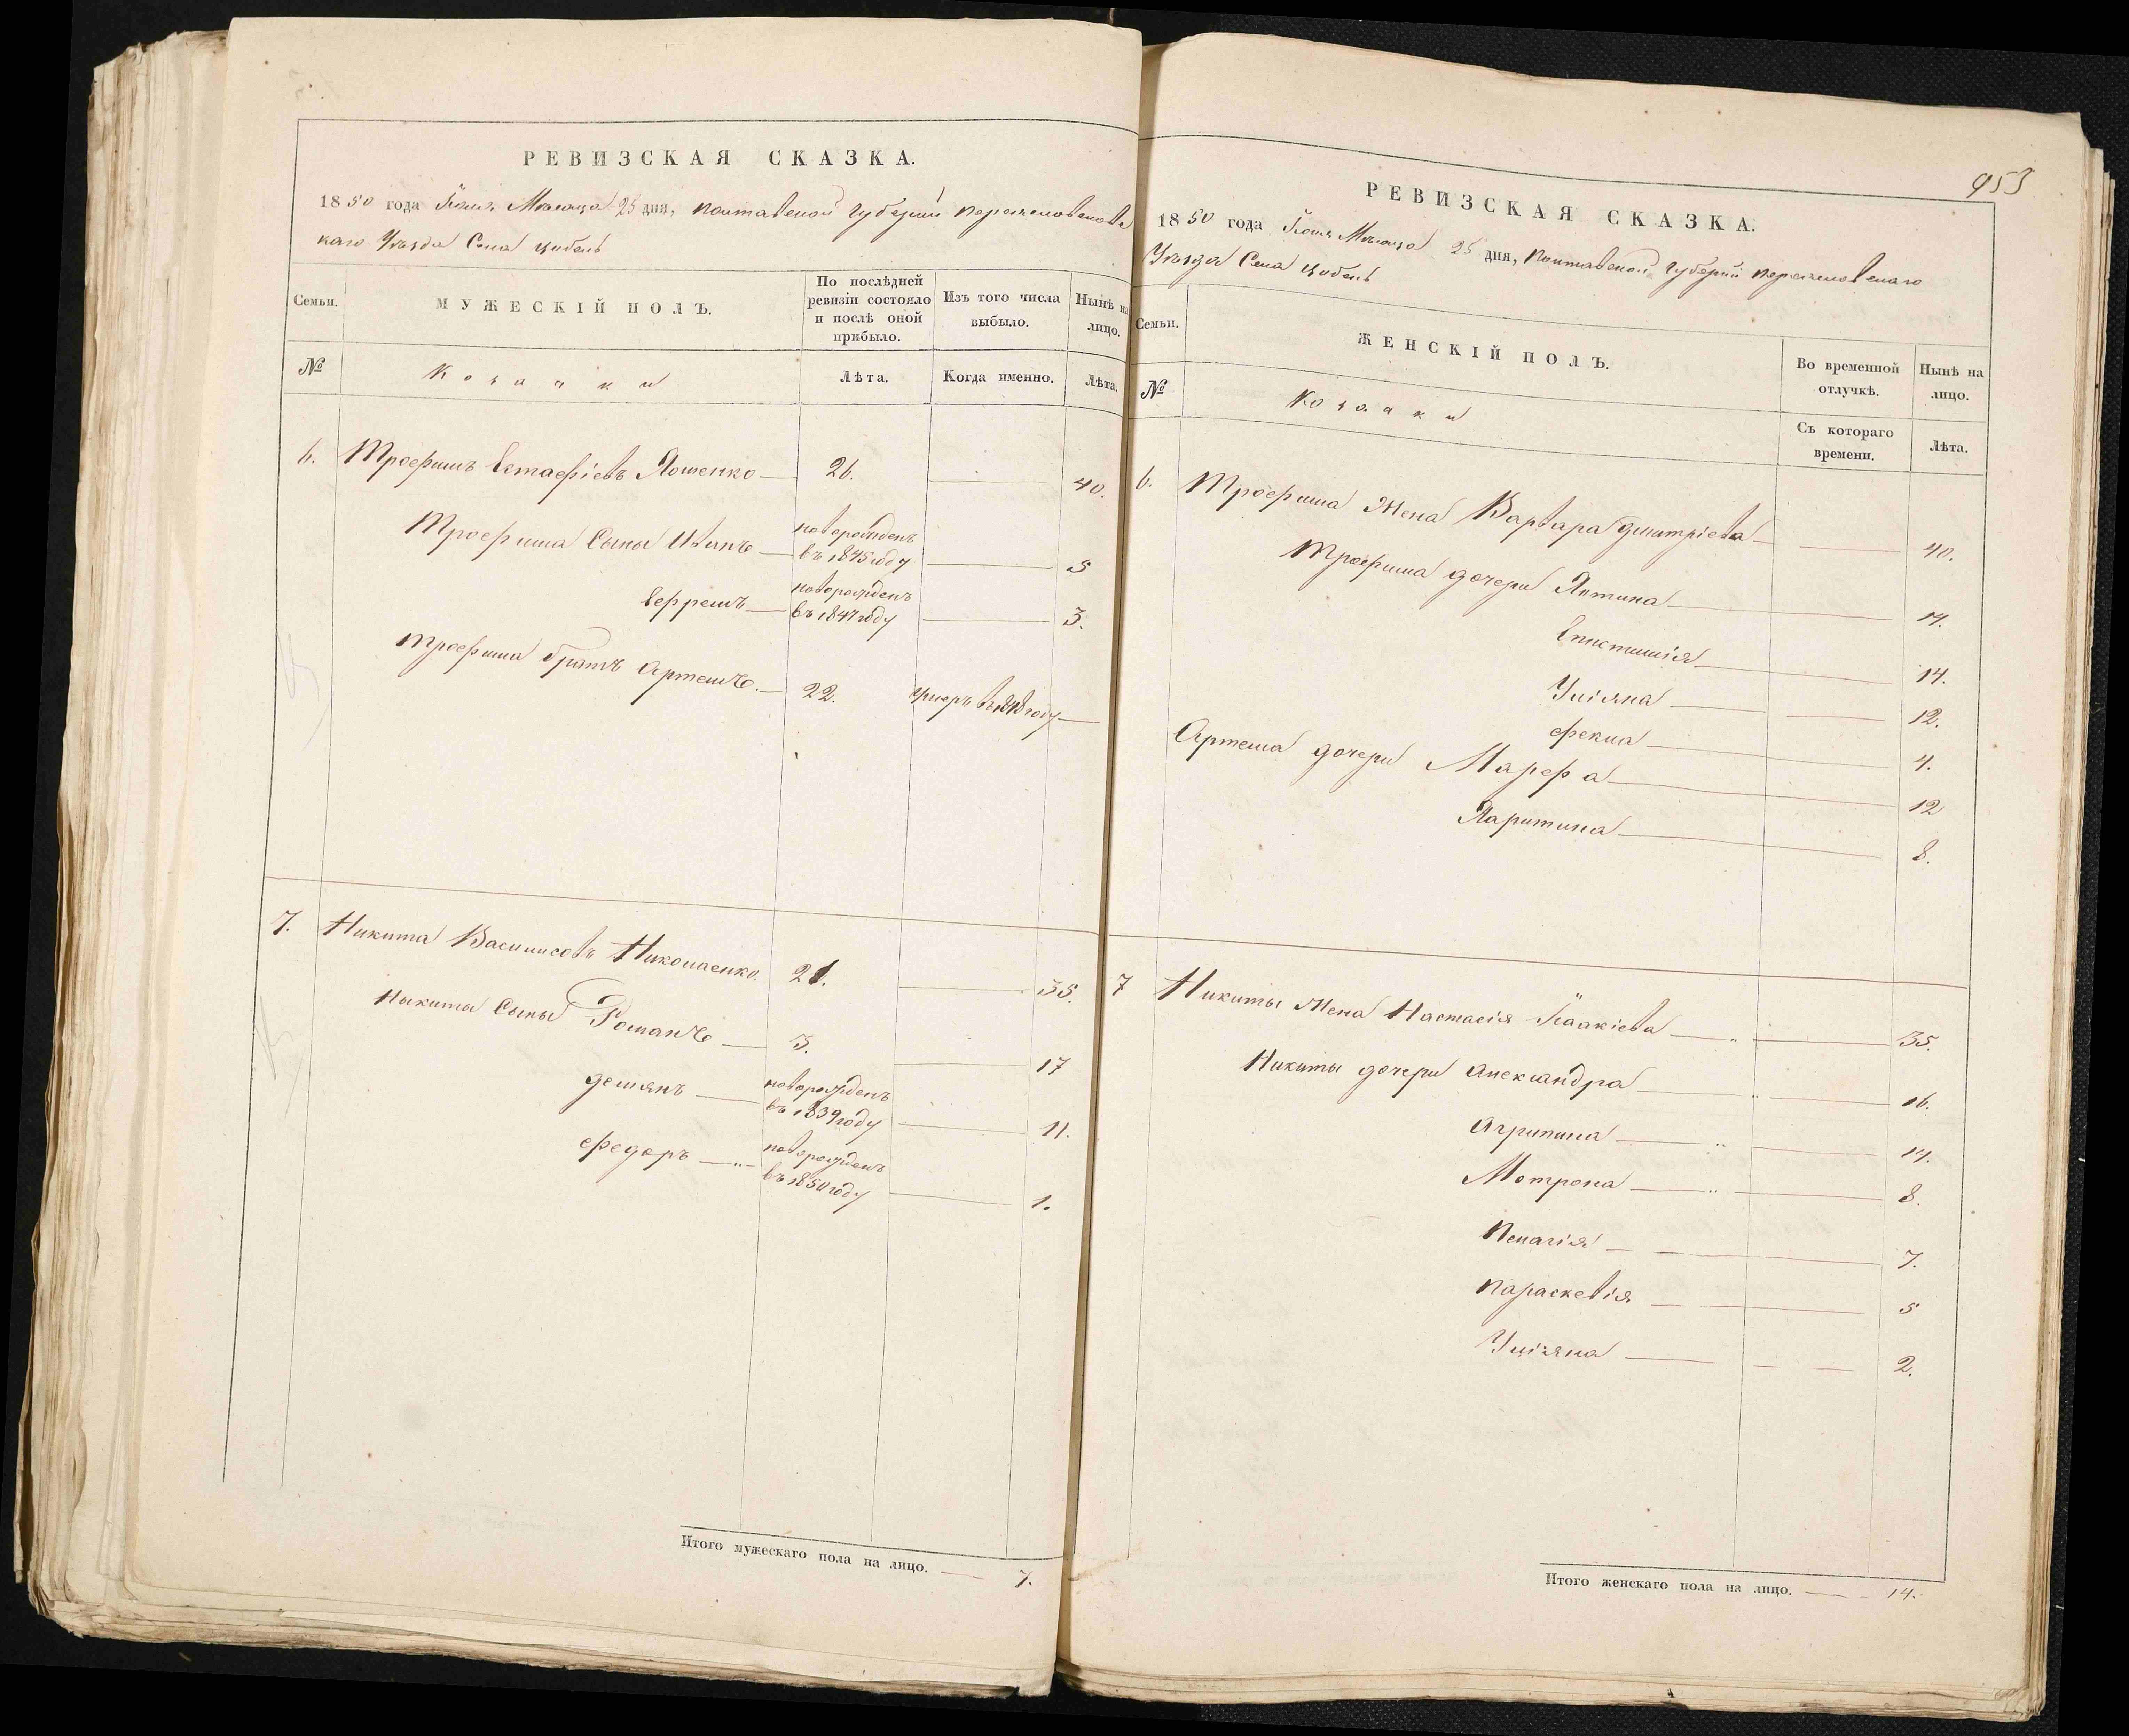 РЕВИЗСКАЯ СКАЗКА.
1850 года Іюля Мѣсяца 25 дня, Полтавской Губерніи Переяславска
каго Уѣзда Села Цибель
Семьи.
МУЖЕСКІЙ ПОЛЪ.
По послѣдней ревизіи состояло и послѣ оной прибыло.
Изъ того числа выбыло.
Нынѣ на лицо.
№
Козачки
Лѣта.
Когда именно.
Лѣта.
6. Трофимъ Естафіевъ Яошенко 26. 40.
Трофима Сыны Иванъ новорожденъ въ 1845 году 5
Ефремъ новорожденъ въ 1847 году 3.
Трофима братъ Артемъ. 22. Умеръ въ 1848 году
7. Никита Василиевъ Николаенко 21. 35.
Никиты Сыны Романъ 3. 17
Демянъ новорожденъ въ 1839 году 11.
Федоръ новорожденъ въ 1850 году 1.
Итого мужескаго пола на лицо. 7.
953
РЕВИЗСКАЯ СКАЗКА.
1850 года Іюля Мѣсяца 25 дня, Полтавской Губерніи Переяславскаго
Уѣзда Села Цибель
Семьи.
ЖЕНСКІЙ ПОЛЪ.
Во временной отлучкѣ.
Нынѣ на лицо.
№
Козачки
Съ котораго времени.
Лѣта.
6. Трофима Жена Варвара Дмитріева 40.
Трофима дочери Яптина 17.
Епистимія 14.
Уліяна 12.
Фекла 4.
Артема дочери Марфа 12
Харитина 8.
7 Никиты Жена Настасія Іоакіева 35.
Никиты дочери Александра 16.
Агрипина 14.
Мотрона 8.
Пелагія 7.
Параскевія 5
Уліяна 2.
Итого женскаго пола на лицо. 14.